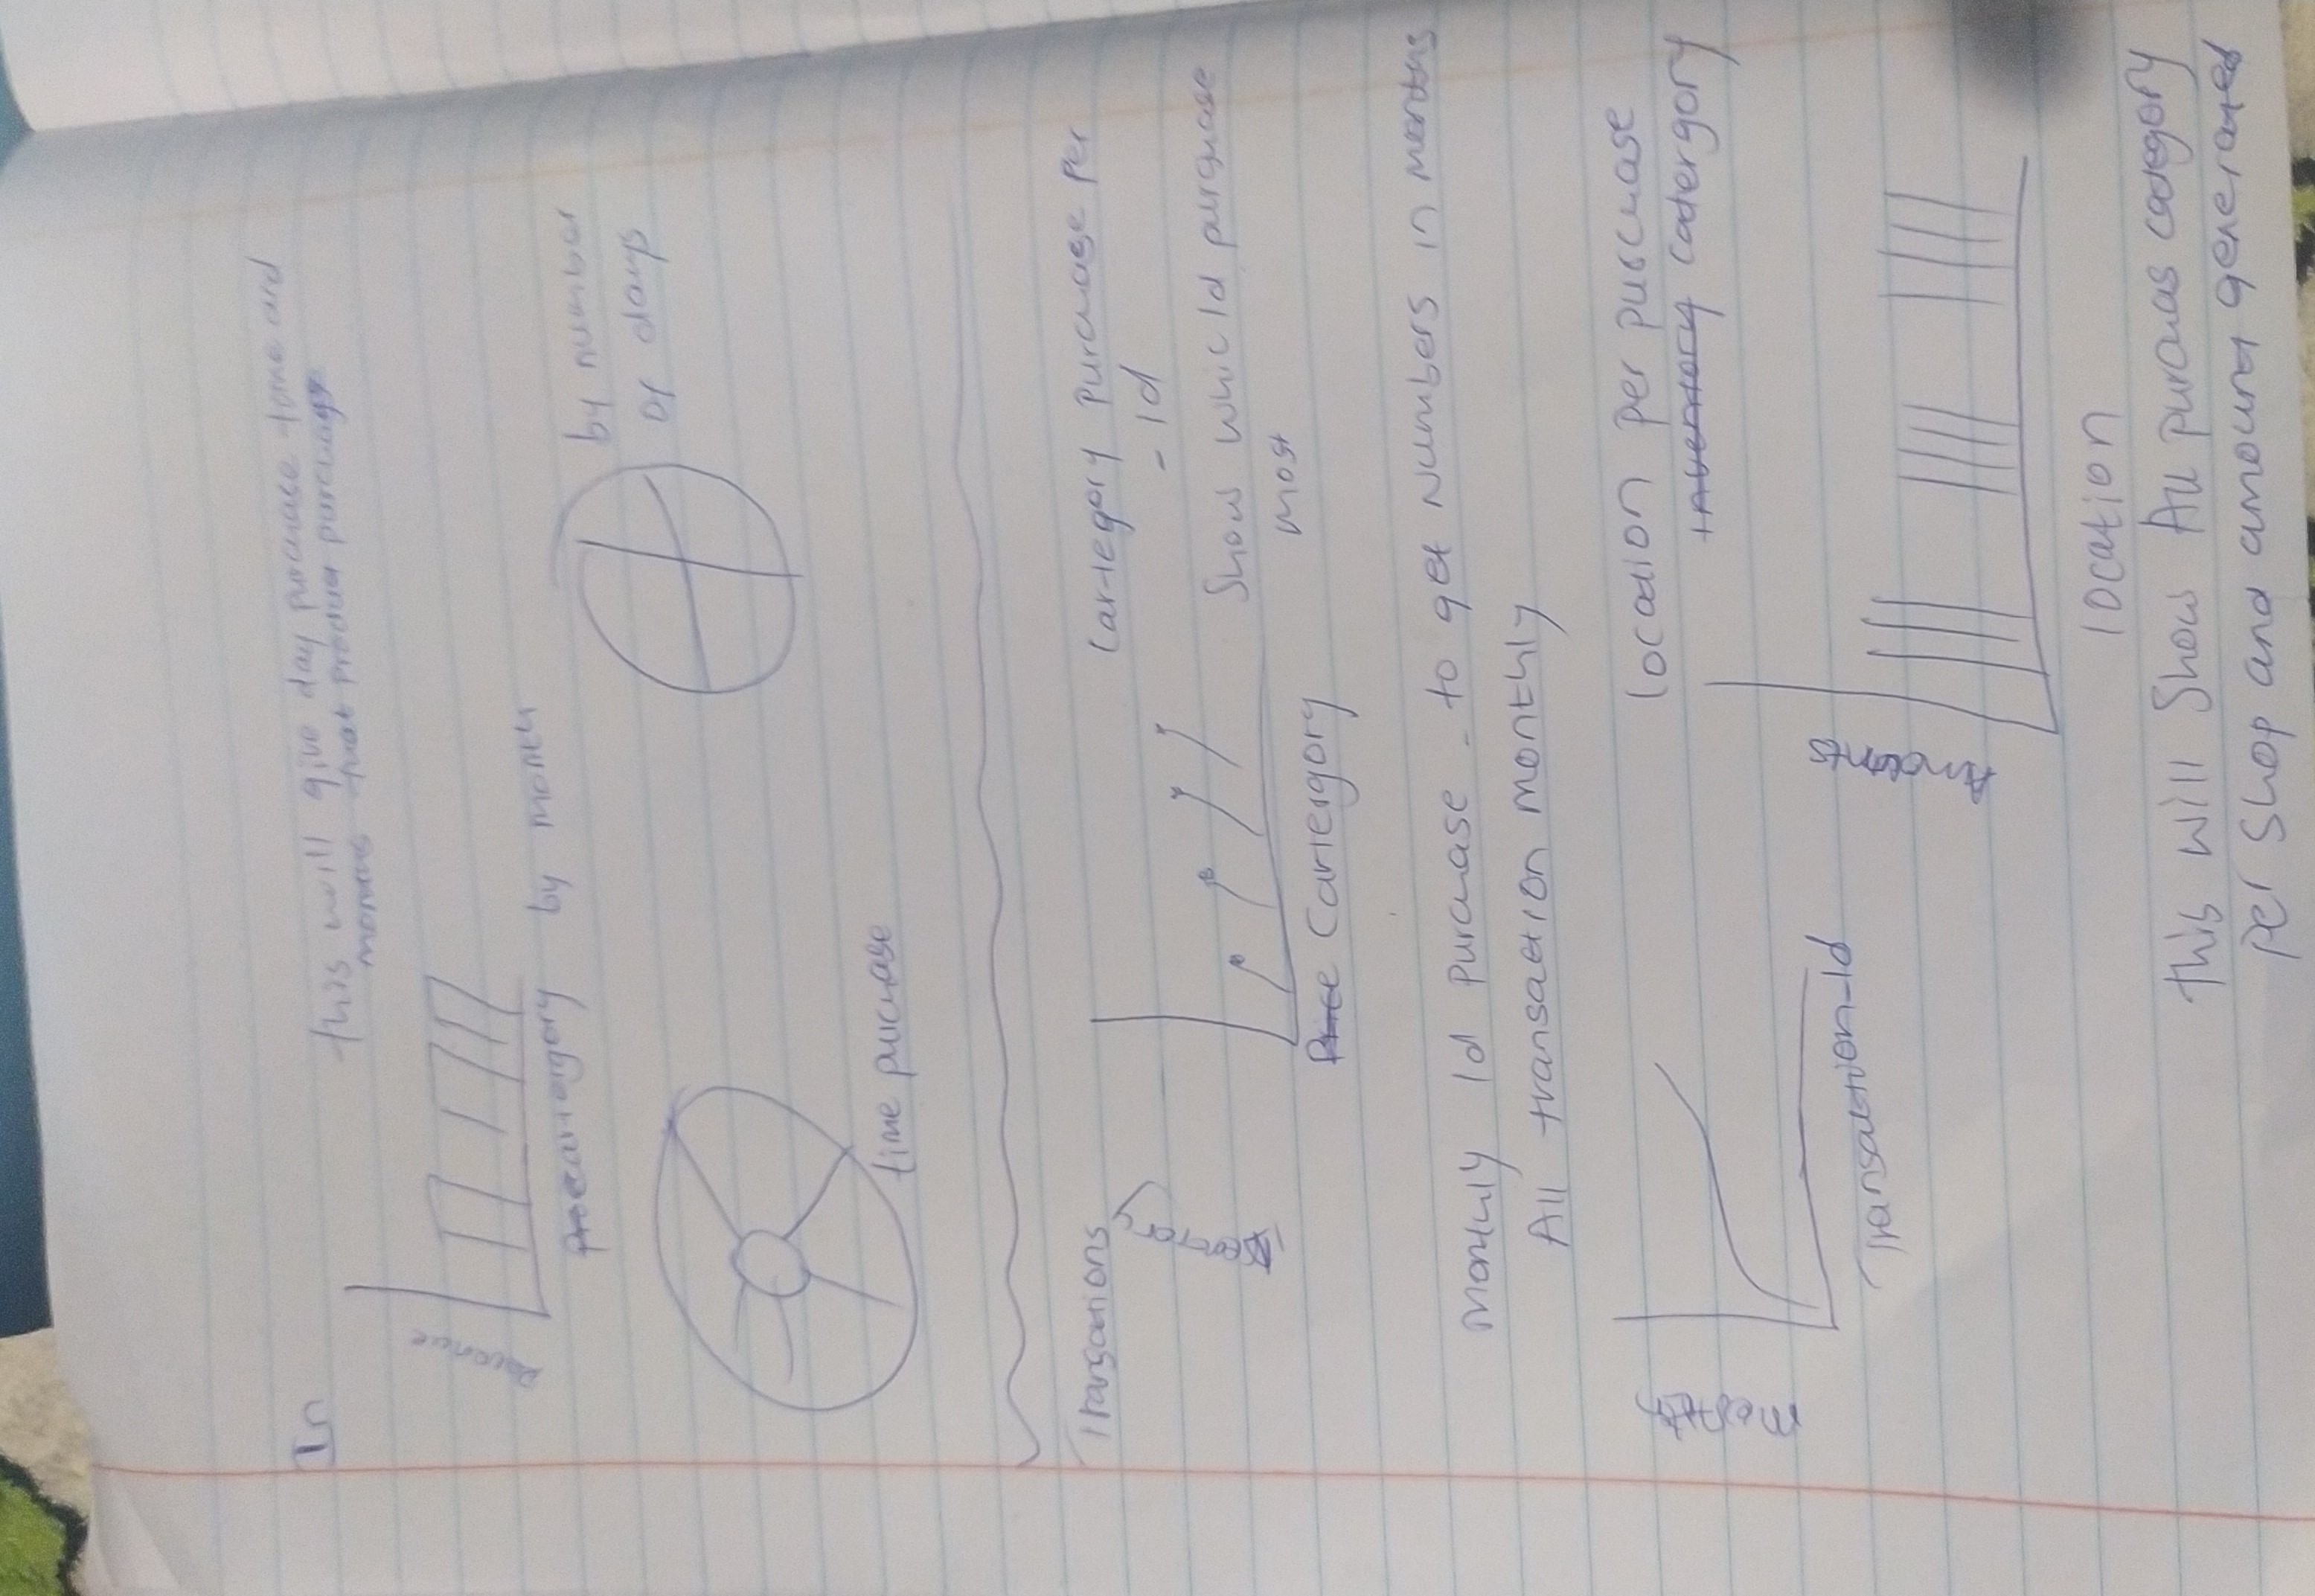 In
this will give day purchase time and
months that product purchage
Revenue
cartergory by month
by number
of days
time purchase
Transations
Cartegory Purchase Per
- Id
Show whic Id purchase
most
Price Cartergory
Monthly Id Purchase - to get Numbers in months
All transaction monthly
Month
Transaction_Id
location per purchase
Inventory catergory
Amounts
location
this will Show All purchas category
per Shop and amount generated